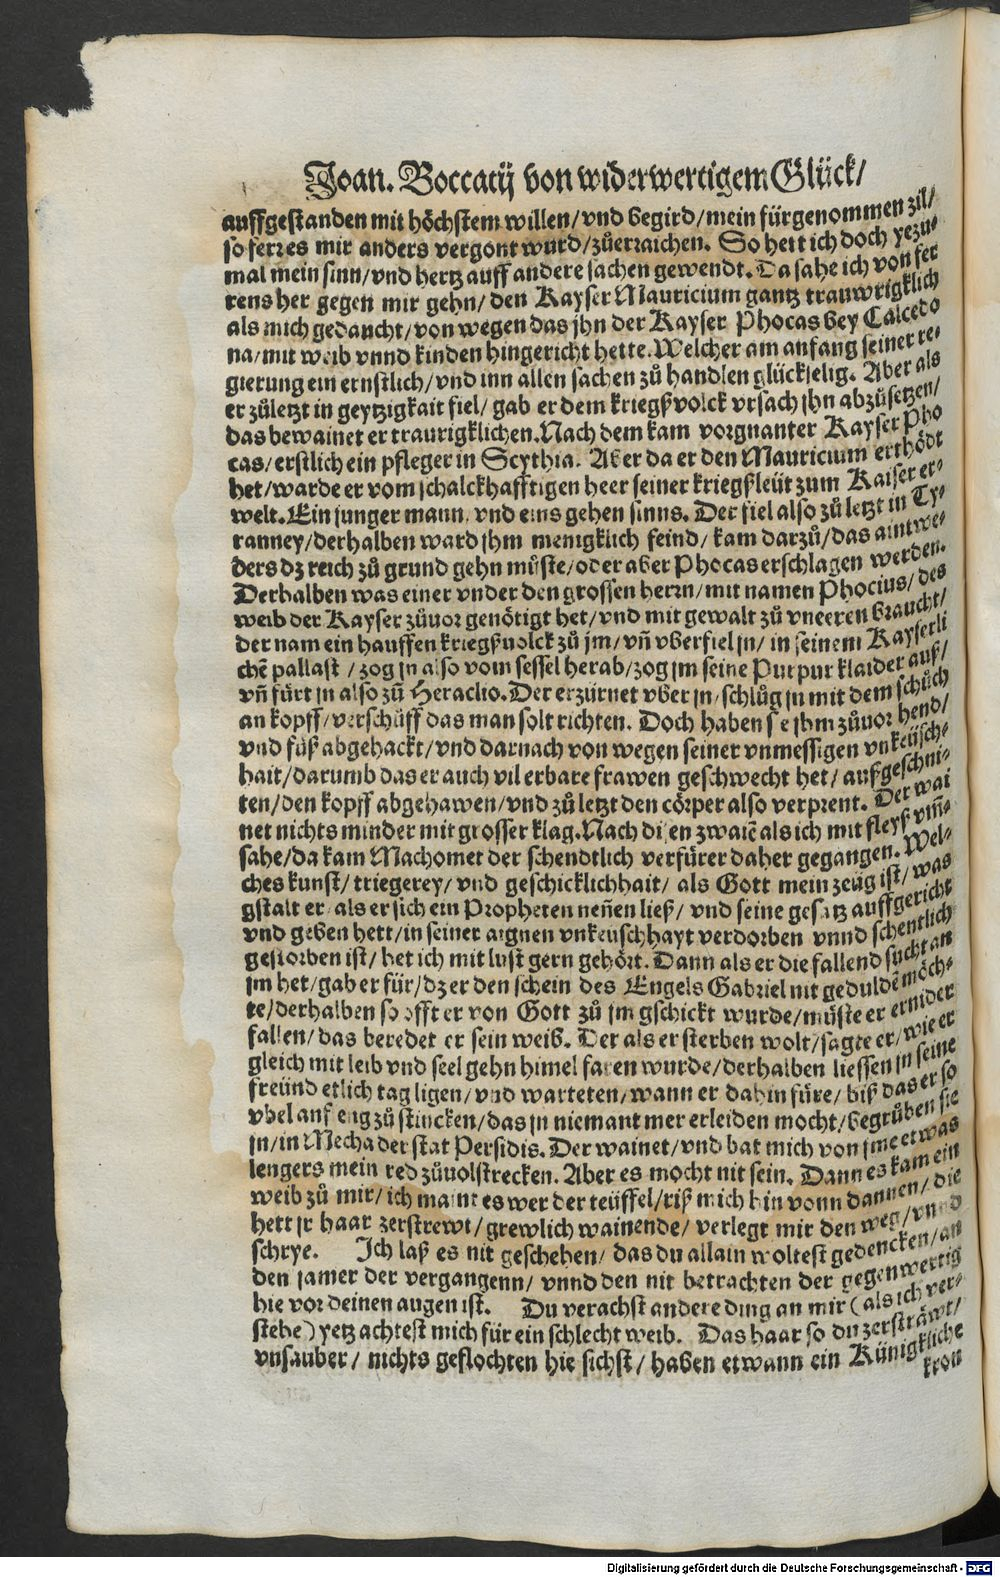 Joan. Boccatij von widerwertigem Glück/
auffgestanden mit höchstem willen/vnd begird/mein fürgenommen zil/
so ferres mir anders vergont wurd/zůerraichen. So hett ich doch yezu⸗
mal mein sinn/vnd hertz auff andere sachen gewendt. Da sahe ich von fer
rens her gegen mir gehn/den Kayser Mauricium gantz trauwrigklich
als mich gedaucht/von wegen das jhn der Kayser Phocas bey Calcedo
na/mit weib vnnd kinden hingericht hette. Welcher am anfang seiner re⸗
gierung ein ernstlich/vnd inn allen sachen zů handlen glückselig. Aber als
er zůletzt in geytzigkait fiel/gab er dem kriegßvolck vrsach jhn abzůsetzen/
das bewainet er traurigklichen. Nach dem kam vorgnanter Kayser Pho
cas/erstlich ein pfleger in Scythia. Aber da er den Mauricium erthödt
het/warde er vom schalckhafftigen heer seiner kriegßleüt zum Kaiser er⸗
welt. Ein junger mann, vnd eins gehen sinns. Der fiel also zů letzt in Ty⸗
ranney/derhalben ward jhm menigklich feind/kam darzů/das aintwe⸗
ders dz reich zů grund gehn müste/oder aber Phocas erschlagen werden.
Derhalben was einer vnder den grossen herrn/mit namen Phocius/des
weib der Kayser zůuor genötigt het/vnd mit gewalt zů vneeren braucht/
der nam ein hauffen kriegßuolck zů jm/vñ vberfiel jn/in seinem Kayserli
chẽ pallast/zog jn also vom sessel herab/zog jm seine Purpur klaider auß/
vñ fürt jn also zů Heraclio. Der erzürnet vber jn/schlůg jn mit dem schůch
an kopff/verschůff das man solt richten. Doch haben sie jhm zůuor hend/
vnd füß abgehackt/vnd darnach von wegen seiner vnmessigen vnkeüsch⸗
hait/darumb das er auch vil erbare frawen geschwecht het/außgeschni⸗
ten/den kopff abgehawen/vnd zů letzt den cörper also verprent. Der wai
net nichts minder mit grosser klag. Nach disen zwaiẽ als ich mit fleyß vm̃⸗
sahe/da kam Machomet der schendtlich verfürer daher gegangen. Wel⸗
ches kunst/triegerey/vnd geschicklichhait/als Gott mein zeüg ist/was
gstalt er als er sich ein Propheten neñen ließ/vnd seine gesatz auffgericht
vnd geben hett/in seiner aignen vnkeuschhayt verdorben vnnd schentlich
gestorben ist/het ich mit lust gern gehört. Dann als er die fallend sucht an
jm het/gab er für/dz er den schein des Engels Gabriel nit geduldẽ möch⸗
te/derhalben so offt er von Gott zů jm gschickt wurde/müste er ernider
fallen/das beredet er sein weib. Der als er sterben wolt/sagte er/wie er
gleich mit leib vnd seel gehn himel faren wurde/derhalben liessen jn seine
freünd etlich tag ligen/vnd warteten/wann er dahin füre/biß das er so
vbel anfeng zů stincken/das jn niemant mer erleiden mocht/begrůben sie
jn/in Mecha der stat Persidis. Der wainet/vnd bat mich von jme etwas
lengers mein red zůuolstrecken. Aber es mocht nit sein. Dann es kam ein
weib zů mir/ich maint es wer der teüffel/riß mich hin vonn dannen/die
hett jr haar zerstrewt/grewlich wainende/verlegt mir den weg/vnnd
schrye. Ich laß es nit geschehen/das du allain woltest gedencken/an
den jamer der vergangenn/vnnd den nit betrachten der gegenwertig
hie vor deinen augen ist. Du verachst andere ding an mir (als ich ver⸗
stehe) yetz achtest mich für ein schlecht weib. Das haar so du zersträwt/
vnsauber/nichts geflochten hie sichst/haben etwann ein Künigkliche
kron
Digitalisierung gefördert durch die Deutsche Forschungsgemeinschaft - DFG